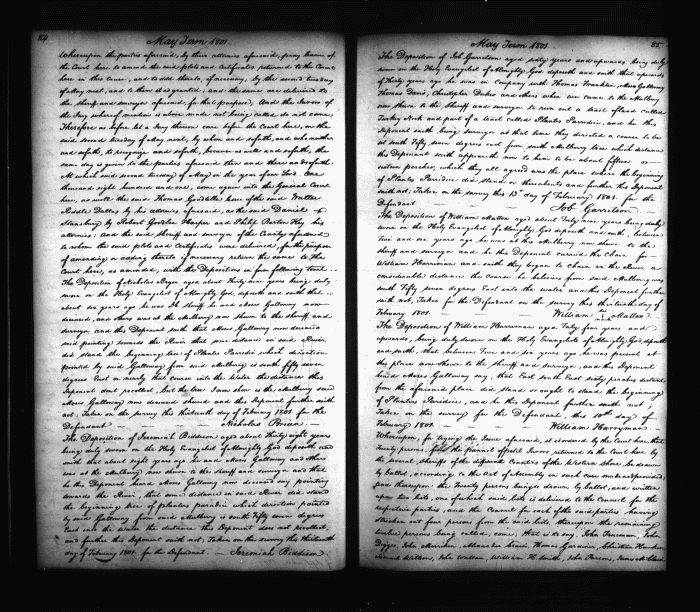 84
May Term 1801
Whereupon the parties aforesaid, by their attornies aforesaid, pray leave of
the Court here to amend the said plots and certificates returned to the Court
here in this cause, and to add thereto, if necessary, by the second tuesday
of May next, and to them it is granted; and the same are delivered to
the sheriff and surveyor aforesaid, for the purpose; And the Jurors of
the Jury whereof mention is above made not being called do not come
Therefore as before let a Jury thereon come before the Court here, on the
said second tuesday of May next, by whom and so forth, and who neither
and so forth, to recognize and so forth, because as well and so forth, the
same day is given to the parties aforesaid then and there and so forth
At which said second tuesday of May in the year of our Lord One
thousand eight hundred and one, come again into the General Court
here, as well the said Thomas Gadsbitter heir of the said Walter
Riddle Dallas by his attorney aforesaid, as the said Daniel
Stansbury by Robert Goodloe Harper and Philip Barton Key his
attornies; and the said sheriff and surveyor of the County aforesaid
to whom the said plots and certificates were delivered, for the purpose
of amending or adding thereto if necessary return the same to the
Court here, as amended, with the Depositions in form following to wit
The Deposition of Nicholas Bryan aged about thirty nine years being duly
sworn on the Holy Evangelist of Almighty God, deposeth and saith that
about six years ago he was Dt. Sheriff to Moses Galloway now
deceased, and there was at the Mulberry now shewn to the sheriff and
surveyor, and this Deponent saith that Moses Galloway now deceased
said pointing towards the River that some distance in said River
did stand the beginning tree of Plantes Paradice which direction
pointed by said Galloway from said Mulberry is south fifty seven
degrees East or nearly that course into the Water the distance this
Deponent don't recollect, but the tree now shewn is the Mulberry said
Moses Galloway now deceased shewed and this Deponent further saith
not; Taken on the survey this thirteenth day of February 1801 for the
Defendant — Nicholas Brian.
The Deposition of Jeremiah Biddison aged about thirty eight years
being duly sworn on the Holy Evangelist of Almighty God deposeth and
saith that about eight years ago he was with Moses Galloway and others
was at the Mulberry now shewn to the sheriff and surveyor and that
he this Deponent heard Moses Galloway now deceased say pointing
towards the River, that some distance in said River did stand
the beginning tree of Plantes paradice which direction pointed
by said Galloway from said Mulberry is south fifty seven degrees
East into the Water the distance this Deponent does not recollect,
and further this Deponent saith not; Taken on the survey this thirteenth
day of February 1801. for the Defendant. — Jeremiah Biddison
May Term 1801
85
The Deposition of Job Garretson aged sixty years and upwards being duly
sworn on the Holy Evangelist of Almighty God deposeth and saith that upwards
of thirty years ago he was in company with Thomas Franklin, Moses Galloway
Thomas Davis, Christopher Dukes and others when we came to the Mulberry
now shewn to the Sheriff and surveyor to run out a tract of land called
Turkey Neck and part of a tract called Plantes Parridice, and he this
Deponent saith being surveyor at that time they directed a course to be
set south fifty seven degrees east from said Mulberry tree which distance
this Deponent saith appeareth now to him to be about fifteen or
sixteen perches, which they all agreed was the place where the beginning
of Plantes Parridice did stand or thereabouts and further this Deponent
saith not; Taken on the survey this 13th day of February 1801 for the
Defendant — Job Garretson
The Deposition of William Mattox aged about forty four years being duly
sworn on the Holy Evangelist of Almighty God deposeth and saith, that between
five and six years ago he was at this Mulberry now shewn to the
sheriff and surveyor and he this Deponent carried the Chain for
William Harriman and saith they began to Chain in the River a
considerable distance the course he believes from said Mulberry was
south fifty seven degrees East into the water and this Deponent further
saith not, Taken for the Defendant on the survey this thirteenth day of
February 1801 — William Mattox
The Deposition of William Harriman aged forty four years and
upwards, being duly sworn on the Holy Evangelist of Almighty God, deposeth
and saith, that between five and six years ago he was present at
this place now shewn to the sheriff and surveyor, and this Deponent
heard Moses Galloway say, that East, south East sixty perches distance
from the aforesaid place did stand or ought to stand the beginning
of Planters Paridice, and he this Deponent further saith not
Taken on the survey for the Defendant, this 10th day of
February 1801 — William Harryman
Whereupon, for trying the Issue aforesaid, it is ordered by the Court here, that
Twenty persons from the pannel of petit Jurors returned to the Court here by
the several Sheriffs of the different Counties of the Western Shore, be drawn
by ballot, according to the Act of Assembly in such case made and provided
and thereupon the Twenty persons being so drawn, by ballot, and written
upon two lists, one of which said lists is delivered to the Council for the
respective parties, and the Council for each of the said parties, having
stricken out four persons from the said lists, thereupon the remaining
twelve persons being called, come, that is to say, John Freeman, John
Boggs, John Merriken, Alexander Stuart, Thomas Gardiner, Christian Hawken
Samuel Wilson, John Watson, William H. Smith, John Parsons,